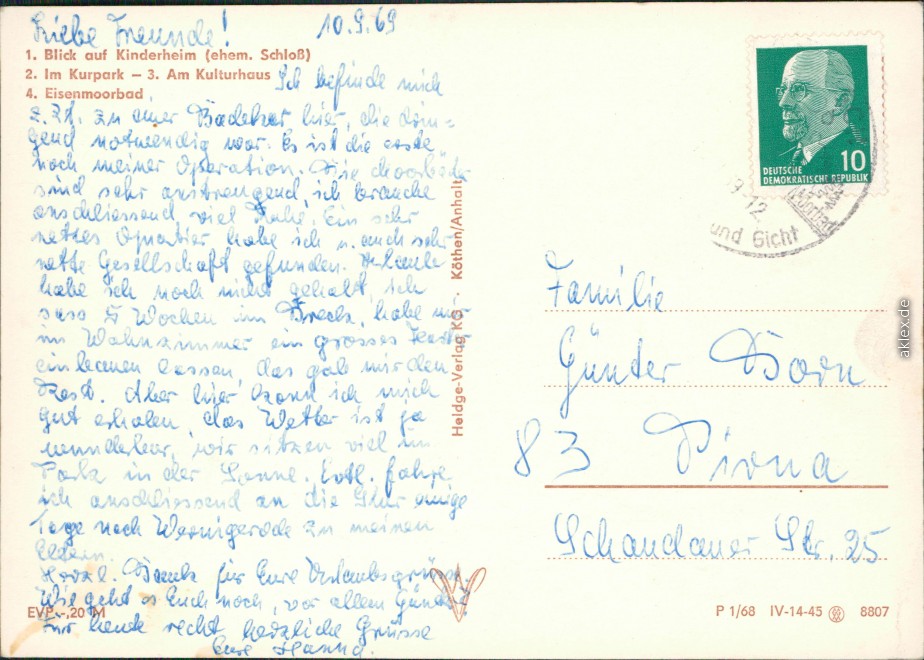 Liebe Freunde! 10.9.69
1. Blick auf Kinderheim (ehem. Schloß)
2. Im Kurpark – 3. Am Kulturhaus
4. Eisenmoorbad
Ich befinde mich
z. Zt. zu einer Badekur hier, die drin=
gend notwendig war. Es ist die erste
nach meiner Operation. Die Moorbäder
sind sehr anstrengend, ich brauche
anschliessend viel Ruhe. Ein sehr
nettes Quartier habe ich u. auch sehr
nette Gesellschaft gefunden. Urlaub
habe ich noch nicht gehabt, ich
sass 5 Wochen im Dreck, habe mir
im Wohnzimmer ein grosses
einbauen lassen das gab mir den
Rest. Aber hier kann ich mich
gut erholen, das Wetter ist ja
wunderbar, wir sitzen viel im
Park in der Sonne. Evtl. fahre
ich anschliessend an die Kur einige
Tage nach Wernigerode zu meinen
Eltern.
Herzl. Dank für Eure Urlaubsgrüsse
Wie geht es Euch noch, vor allem Günter?
Für heute recht herzliche Grüsse
Eure Hanna.
EVP -,20 M
Heldge-Verlag KG. Köthen/Anhalt
DEUTSCHE
DEMOKRATISCHE REPUBLIK 10
12
Moorbad
und Gicht
Familie
Günter Born
83 Pirna
Schandauer Str. 25
P 1/68 IV-14-45 8807
akpool.de